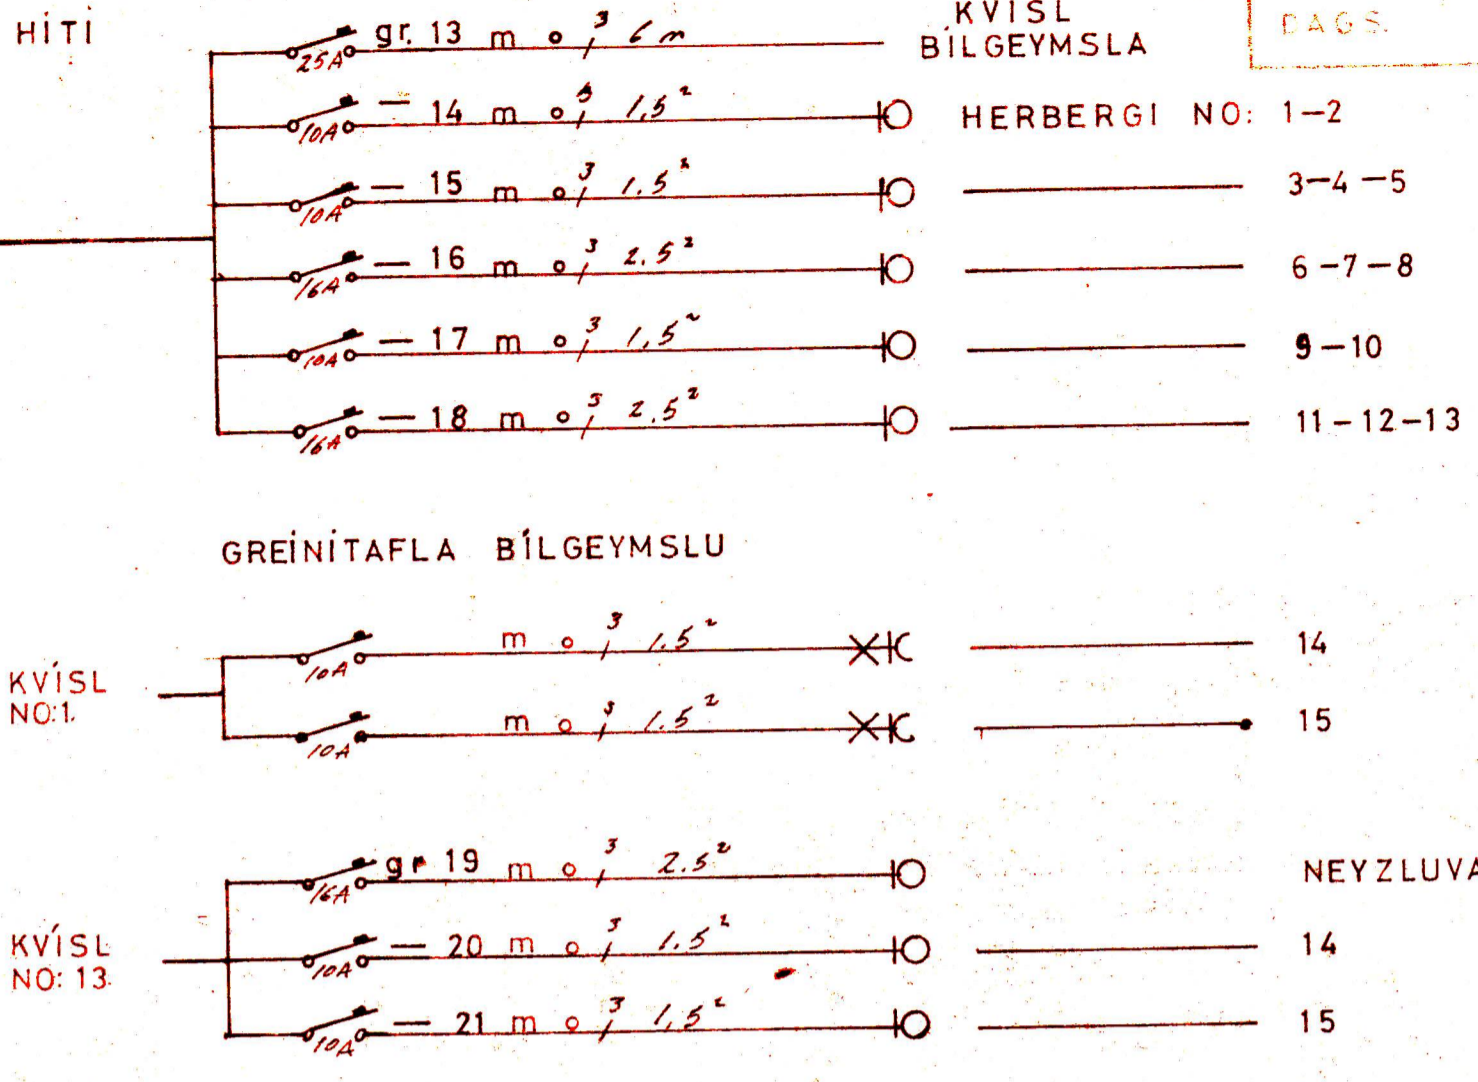 HÍTÍ
KVÍSL
BÍLGEYMSLA
DAGS.
25A gr. 13 m 3 6 m
10A — 14 m 3 1,5² HERBERGI NO: 1-2
10A — 15 m 3 1.5² 3-4-5
16A — 16 m 3 2.5² 6-7-8
10A — 17 m 3 1,5² 9-10
16A — 18 m 3 2.5² 11-12-13
GREÍNÍTAFLA BÍLGEYMSLU
KVÍSL
NO:1.
10A m 3 1.5² 14
10A m 3 1.5² 15
KVÍSL
NO: 13.
16A gr 19 m 3 2.5² NEYZLUVA
10A — 20 m 3 1.5² 14
10A — 21 m 3 1,5² 15